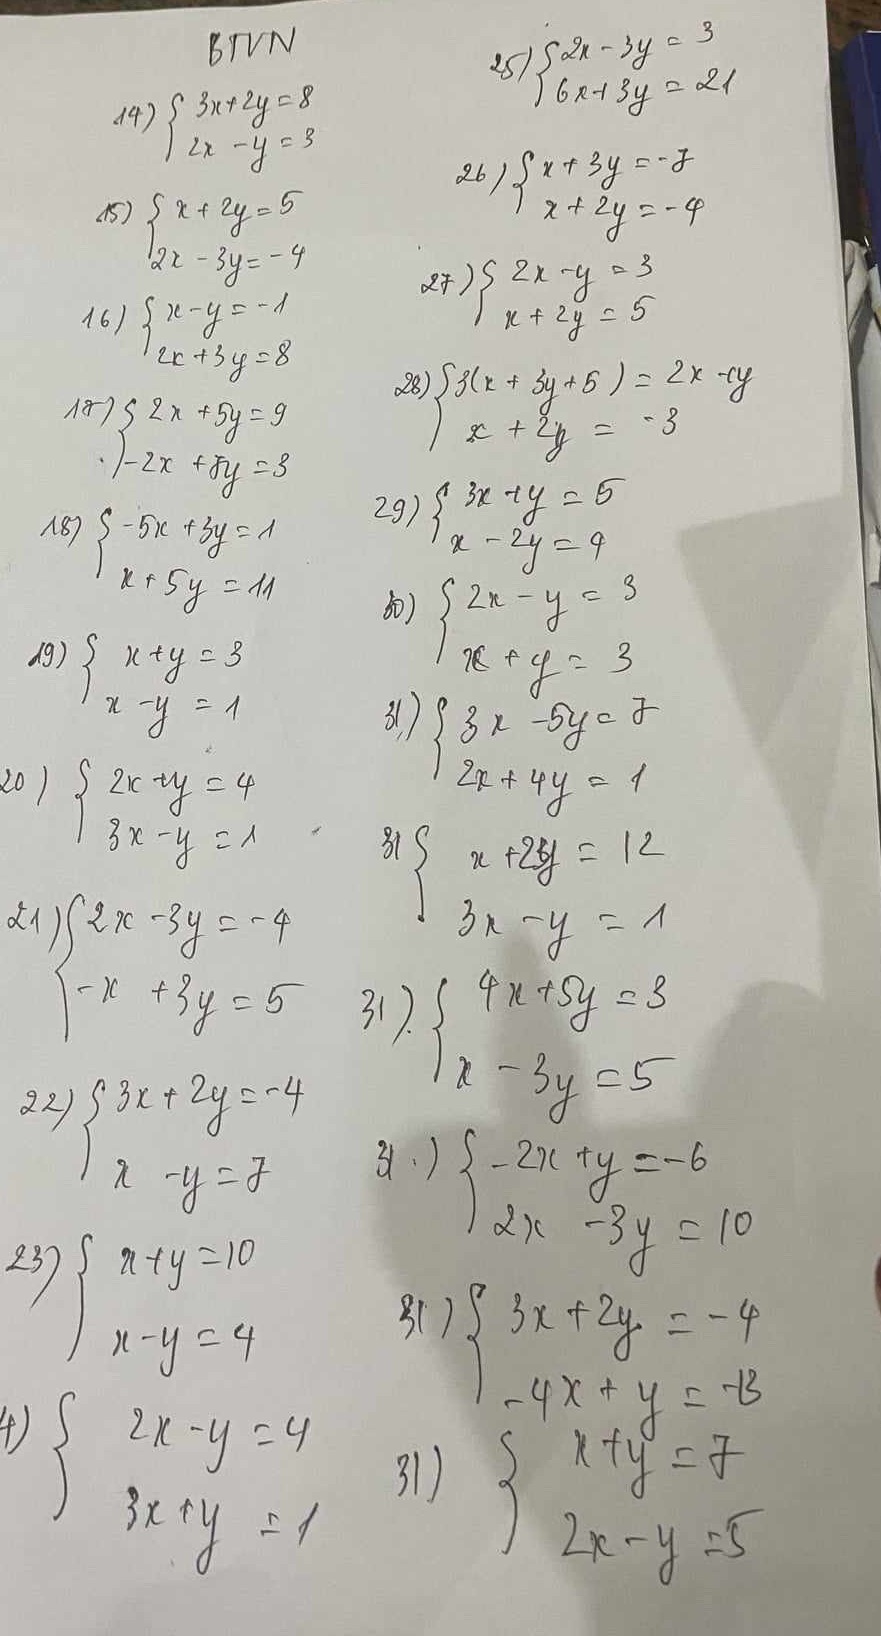 BTVN
14) { 3x+2y=8
2x -y=3
15) { x+2y=5
2x-3y=-4
16) { x-y=-1
2x+3y=8
17) { 2x+5y=9
-2x+8y=3
18) { -5x+3y=1
x+5y=11
19) { x+y=3
x-y=1
20) { 2x+y=4
3x-y=1
21) { 2x-3y=-4
-x+3y=5
22) { 3x+2y=-4
x-y=7
23) { x+y=10
x-y=4
4) { 2x-y=4
3x+y=1
25) { 2x-3y=3
6x+3y=21
26) { x+3y=-7
x+2y=-4
27) { 2x-y=3
x+2y=5
28) { 3(x+3y+5)=2x-y
x+2y=-3
29) { 3x+y=5
x-2y=4
30) { 2x-y=3
x+y=3
31) { 3x-5y=7
2x+4y=1
31 { x+2y=12
3x-y=1
31) { 4x+5y=3
x-3y=5
31.) { -2x+y=-6
2x-3y=10
31) { 3x+2y=-4
-4x+y=-13
31) { x+y=7
2x-y=5